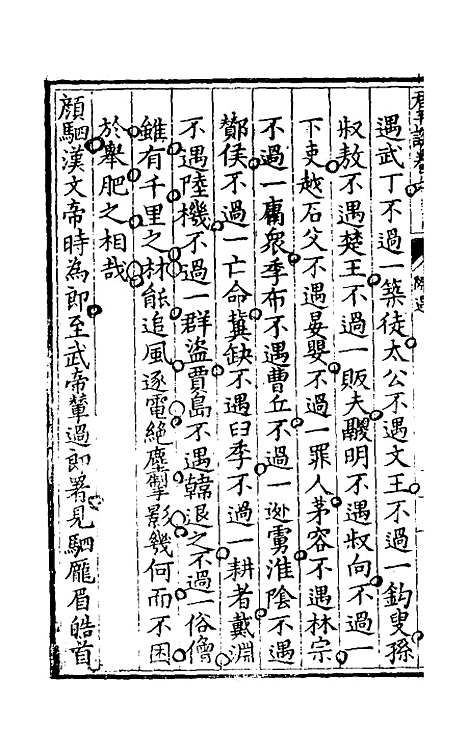 遇武丁不過一築徒太公不遇文王不過一釣叟孫
叔敖不遇楚王不過一販夫鬷明不遇叔向不過一
下吏越石父不遇晏嬰不過一罪人茅容不遇林宗
不過一庸眾季布不遇曹丘不過一逊虜淮陰不遇
酇侯不過一亡命冀缺不遇臼季不過一耕者戴淵
不遇陸機不過一群盜賈島不遇韓退之不過一俗僧
雖有千里之材能追風逐電絕塵掣影幾何而不困
於舉肥之相哉
顔駟漢文帝時為郎至武帝輦過郎署見駟龐眉皓首